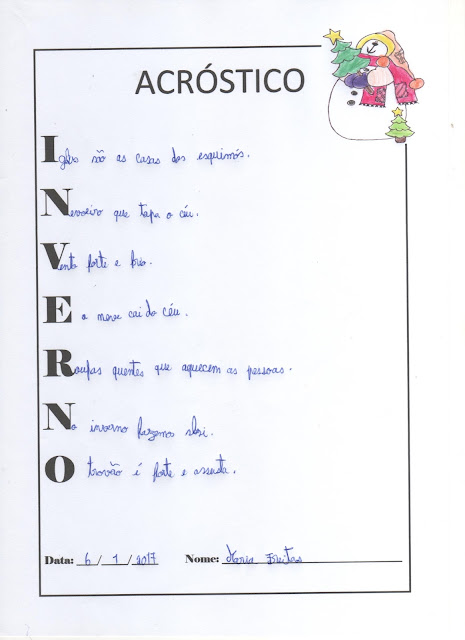 ACRÓSTICO
Iglos são as casas dos esquimós.
Nevoeiro que tapa o céu.
Vento forte e frio.
E a neve cai do céu.
Roupas quentes que aquecem as pessoas.
No inverno fazemos skси.
O trovão é forte e assusta.
Data: 6 / 1 / 2017 Nome: Maria Freitas